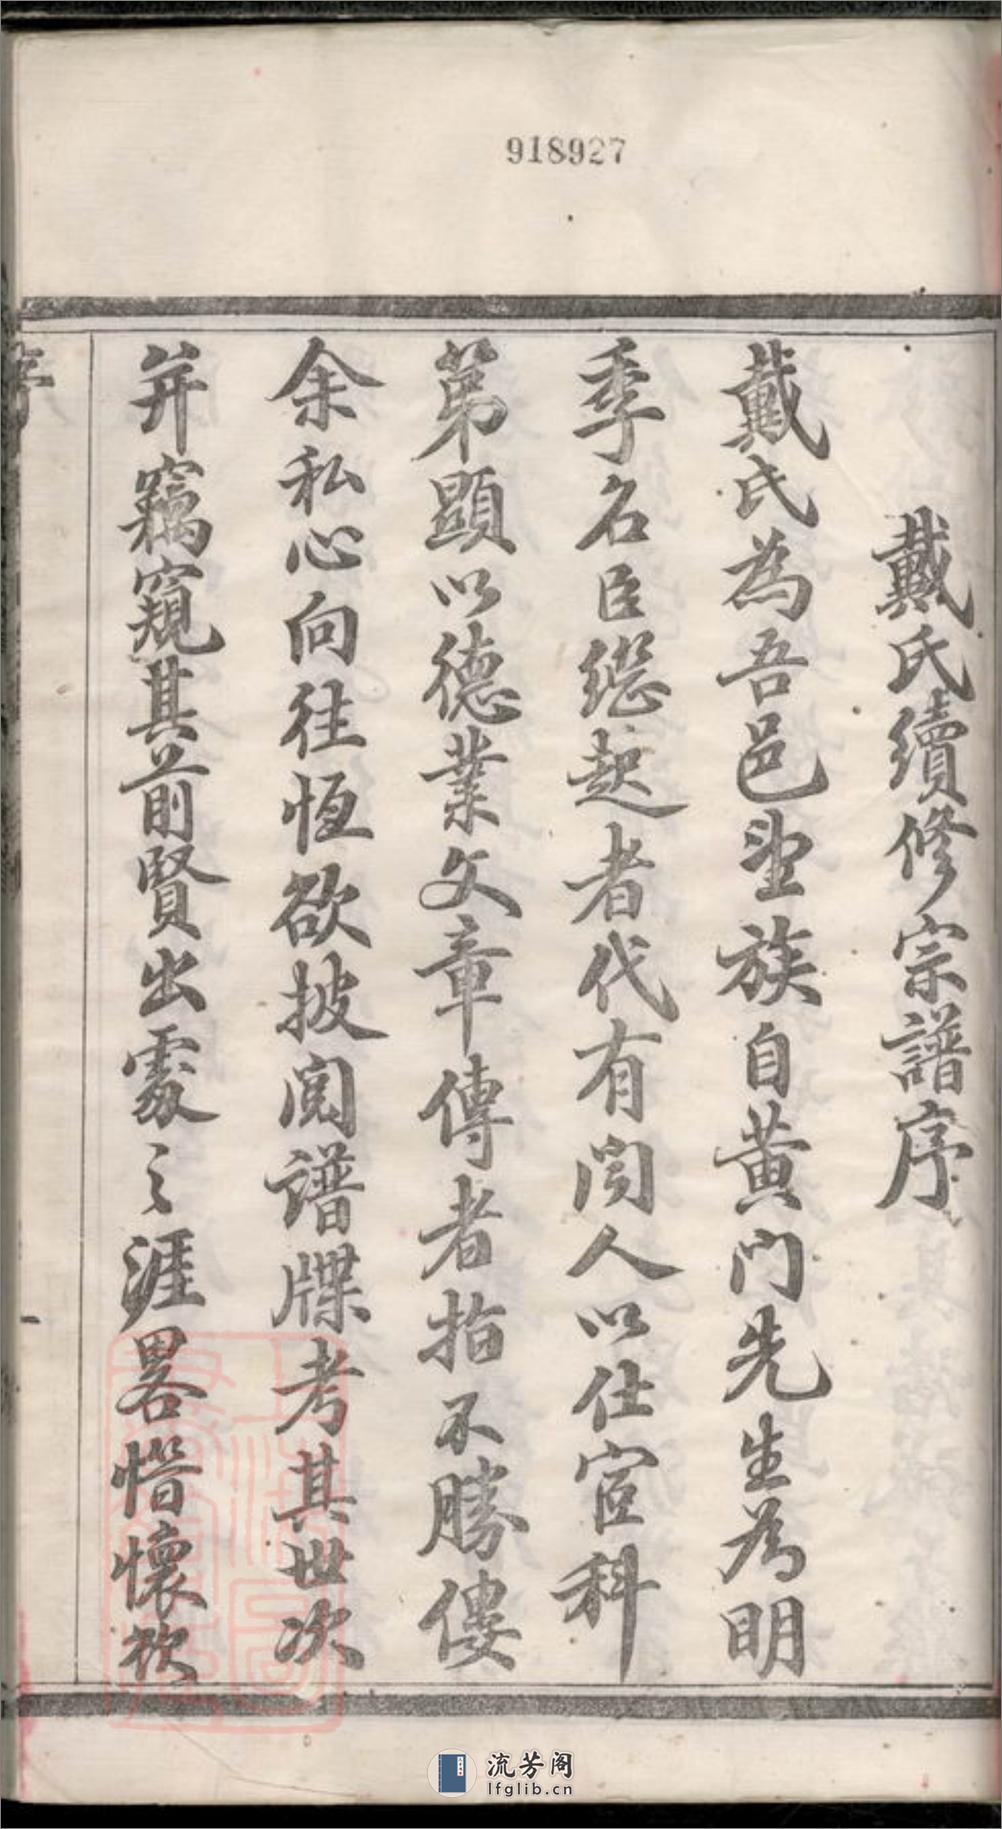 918927
戴氏續修宗譜序
戴氏為吾邑望族自黃门先生為明
季名臣継起者代有闻人以仕宦科
第顯以德業文章傳者指不勝僂
余私心向往恆欲披阅谱牒考其世次
并竊窺其前賢出處之涯畧惜懷欲
序
一
流芳阁
lfglib.cn